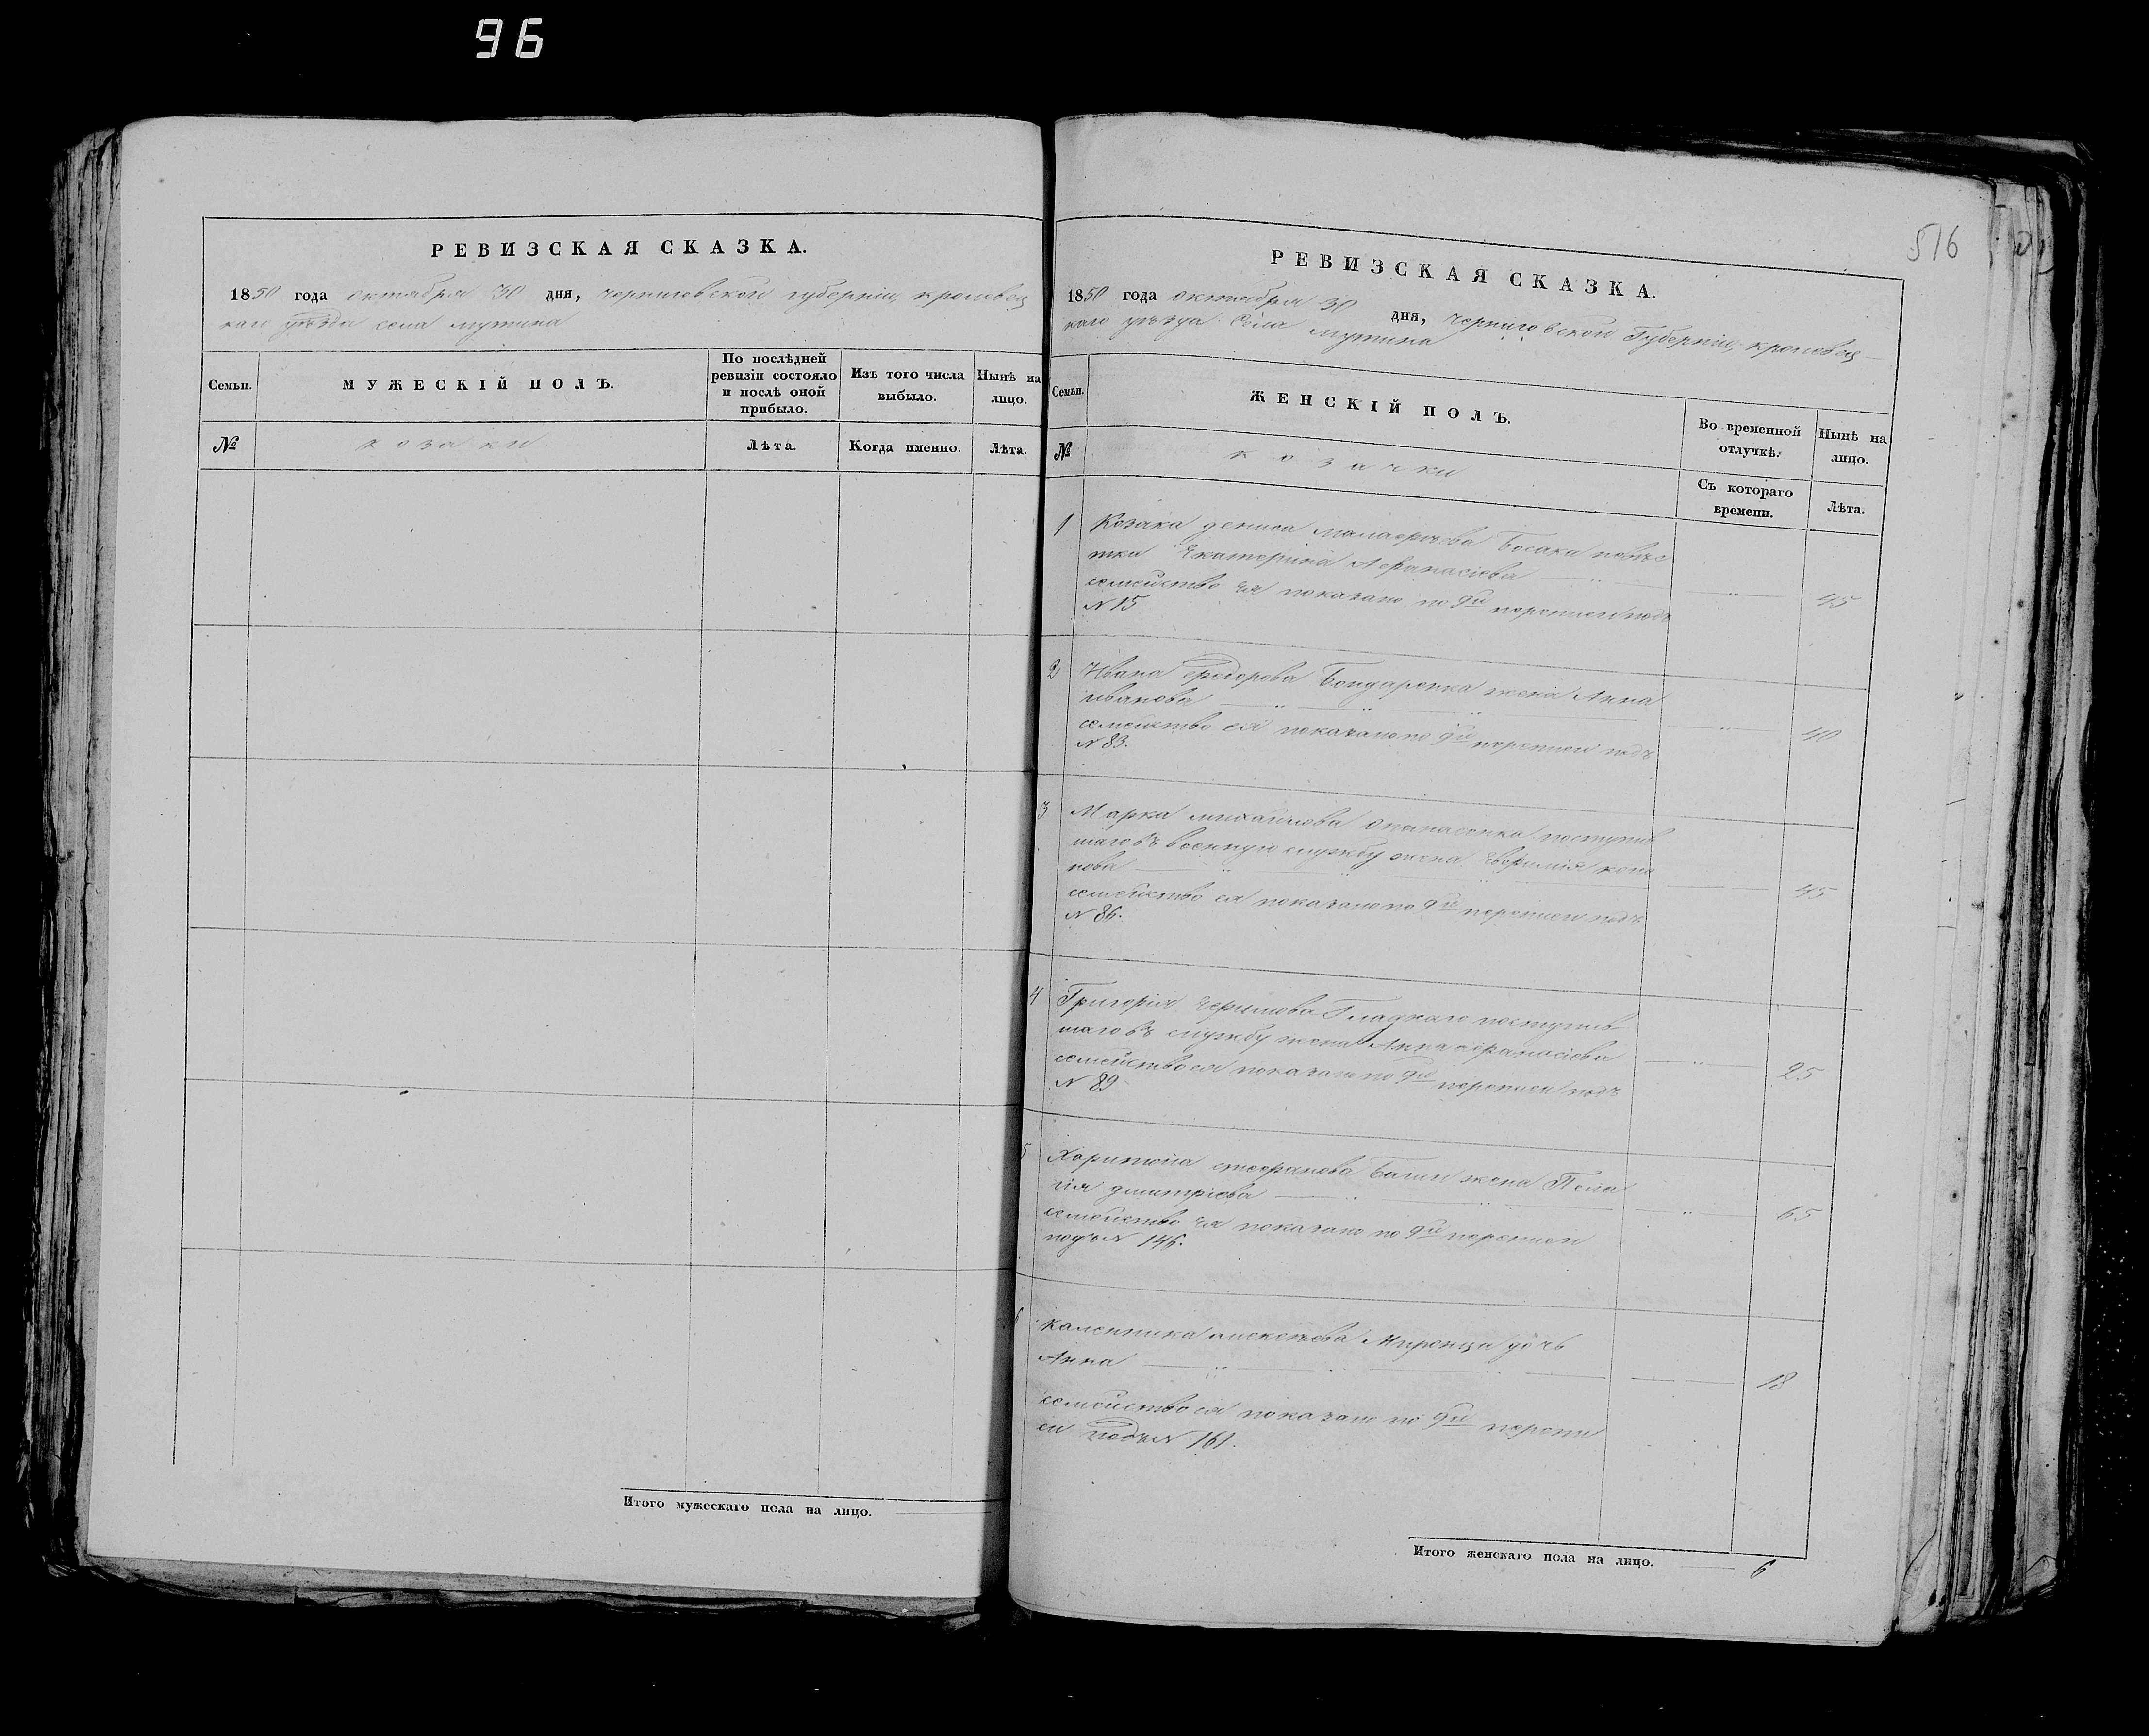 96
516
РЕВИЗСКАЯ СКАЗКА.
1850 года октября 30 дня, черниговской губерніи, кролевец
каго уѣзда села мутина
Семьи.
МУЖЕСКІЙ ПОЛЪ.
По послѣдней
ревизіи состояло
и послѣ оной
прибыло.
Изъ того числа
выбыло.
Нынѣ на
лицо.
№
козаки
Лѣта.
Когда именно.
Лѣта.
Итого мужескаго пола на лицо.
РЕВИЗСКАЯ СКАЗКА.
1850 года октября 30 дня, Черниговской Губерніи, кролевец
каго уѣзда Села Мутина
Семьи.
ЖЕНСКІЙ ПОЛЪ.
Во временной
отлучкѣ.
Нынѣ на
лицо.
№
козачки
Съ котораго
времени.
Лѣта.
1 Козака дениса Босака невѣс
тка Екатерина Афанасіева
семейство ея показано по 9й переписи подъ 45
№ 15
2 Ивана Федорова Бондаренка жена Анна
иванова
семейство ея показано по 9й переписи подъ 40
№ 83.
3 Марка михайлова опанасенка поступив
шаго въ военную службу жена Евфимія коно
нова 45
семейство ея показано по 9й переписи подъ
№ 86.
4 Григорія Гладкаго поступив
шаго въ службу жена Анна афанасіева
семейство ея показано по 9й переписи подъ 25
№ 89
5 Харитона стефанова жена Пела
гія дмитріева 65
семейство ея показано по 9й переписи
подъ № 146.
6 каленника алексѣева Миронца дочь
Анна 18
семейство ея показано по 9й перепи
си подъ № 161.
Итого женскаго пола на лицо. 6